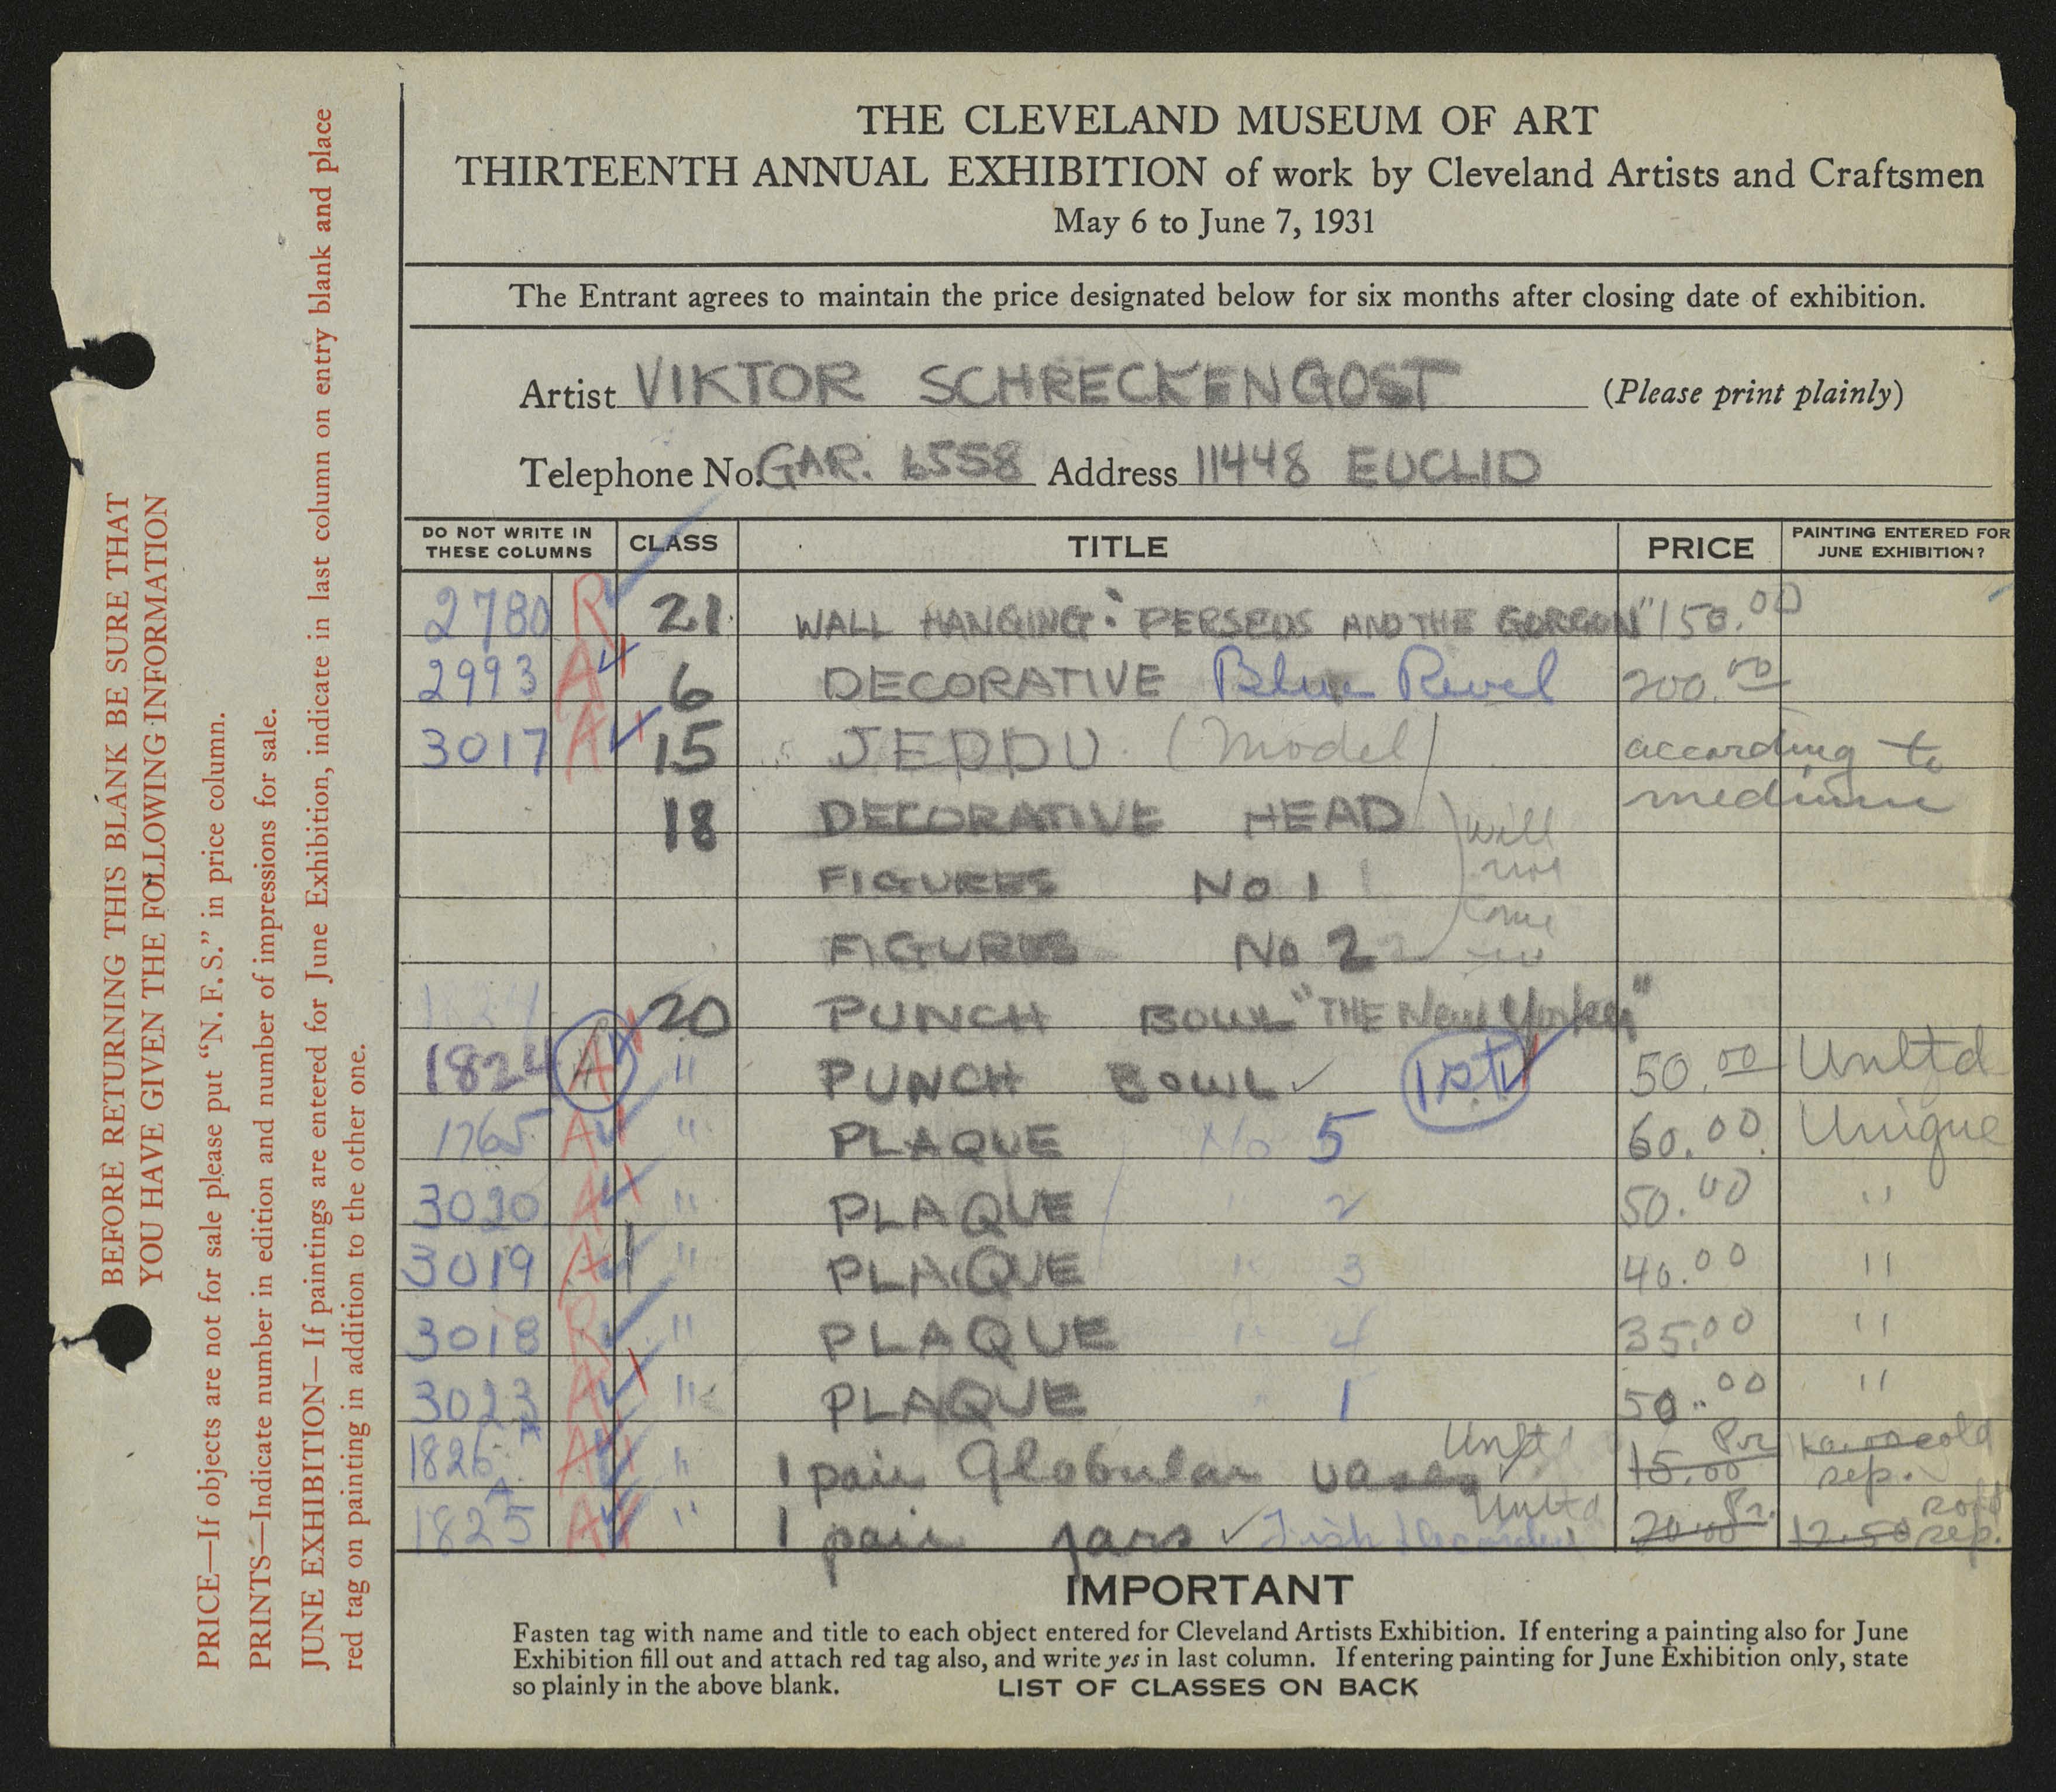 THE CLEVELAND MUSEUM OF ART
THIRTEENTH ANNUAL EXHIBITION of work by Cleveland Artists and Craftsmen
May 6 to June 7, 1931
The Entrant agrees to maintain the price designated below for six months after closing date of exhibition.
Artist VIKTOR SCHRECKENGOST (Please print plainly)
Telephone No. GAR. 6558 Address 11448 EUCLID
DO NOT WRITE IN THESE COLUMNS CLASS TITLE PRICE PAINTING ENTERED FOR JUNE EXHIBITION?
2780 R 21 WALL HANGING: "PERSEUS AND THE GORGON" 150.00
2993 A 6 DECORATIVE Blue Revel 200.00
3017 A 15 JEDDU (Model) according to
medium
18 DECORATIVE HEAD will
FIGURES No 1 not
come
FIGURES No 2 in
1824 20 PUNCH BOWL "THE New Yorker"
1824 A " PUNCH BOWL 1st 50.00 Unltd
1765 A " PLAQUE No 5 60.00 Unique
3020 A " PLAQUE " 2 50.00 "
3019 A " PLAQUE " 3 40.00 "
3018 R " PLAQUE " 4 35.00 "
3023 A " PLAQUE " 1 50.00 "
1826 A " 1 pair Globular vases Unltd 15.00 Pr rep.
1825 A " 1 pair jars Unltd 20.00 Pr. 12.50 rep.
IMPORTANT
Fasten tag with name and title to each object entered for Cleveland Artists Exhibition. If entering a painting also for June
Exhibition fill out and attach red tag also, and write yes in last column. If entering painting for June Exhibition only, state
so plainly in the above blank. LIST OF CLASSES ON BACK
BEFORE RETURNING THIS BLANK BE SURE THAT
YOU HAVE GIVEN THE FOLLOWING INFORMATION
PRICE—If objects are not for sale please put "N. F. S." in price column.
PRINTS—Indicate number in edition and number of impressions for sale.
JUNE EXHIBITION—If paintings are entered for June Exhibition, indicate in last column on entry blank and place
red tag on painting in addition to the other one.